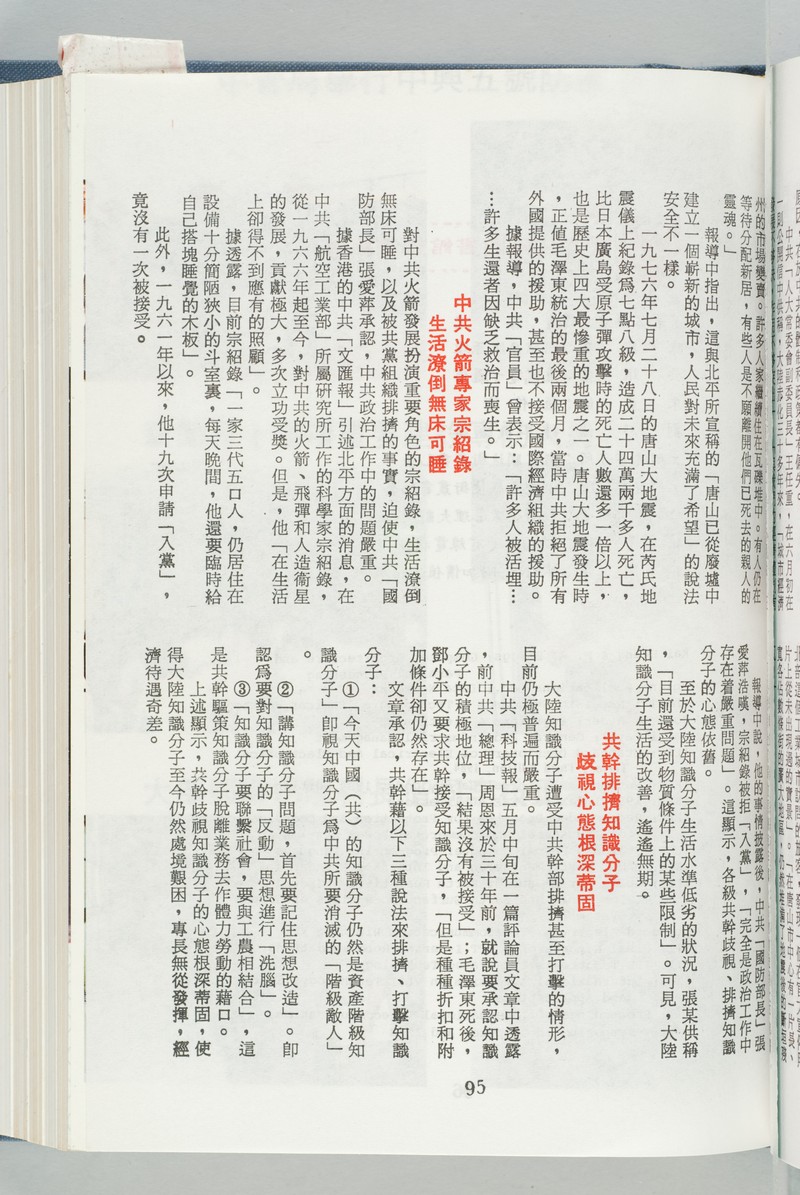 州的市場變賣。許多人家繼續住在瓦礫堆中。有人仍在
等待分配新居，有些人是不願離開他們已死去的親人的
靈魂。」
報導中指出，這與北平所宣稱的「唐山已從廢墟中
建立一個嶄新的城市，人民對未來充滿了希望」的說法
安全不一樣。
一九七六年七月二十八日的唐山大地震，在芮氏地
震儀上紀錄爲七點八級，造成二十四萬兩千多人死亡，
比日本廣島受原子彈攻擊時的死亡人數還多一倍以上，
也是歷史上四大最慘重的地震之一。唐山大地震發生時
，正值毛澤東統治的最後兩個月，當時中共拒絕了所有
外國提供的援助，甚至也不接受國際經濟組織的援助。
據報導，中共「官員」曾表示：「許多人被活埋…
…許多生還者因缺乏救治而喪生。」
中共火箭專家宗紹錄
生活潦倒無床可睡
對中共火箭發展扮演重要角色的宗紹錄，生活潦倒
無床可睡，以及被共黨組織排擠的事實，迫使中共「國
防部長」張愛萍承認，中共政治工作中的問題嚴重。
據香港的中共「文匯報」引述北平方面的消息，在
中共「航空工業部」所屬研究所工作的科學家宗紹錄，
從一九六六年起至今，對中共的火箭、飛彈和人造衞星
的發展，貢獻極大，多次立功受獎。但是，他「在生活
上卻得不到應有的照顧」。
據透露，目前宗紹錄「一家三代五口人，仍居住在
設備十分簡陋狹小的斗室裏，每天晚間，他還要臨時給
自己搭塊睡覺的木板」。
此外，一九六一年以來，他十九次申請「入黨」，
竟沒有一次被接受。
報導中說，他的事情披露後，中共「國防部長」張
愛萍浩嘆，宗紹錄被拒「入黨」，「完全是政治工作中
存在着嚴重問題」。這顯示，各級共幹歧視、排擠知識
分子的心態依舊。
至於大陸知識分子生活水準低劣的狀況，張某供稱
，「目前還受到物質條件上的某些限制」。可見，大陸
知識分子生活的改善，遙遙無期。
共幹排擠知識分子
歧視心態根深蒂固
大陸知識分子遭受中共幹部排擠甚至打擊的情形，
目前仍極普遍而嚴重。
中共「科技報」五月中旬在一篇評論員文章中透露
，前中共「總理」周恩來於三十年前，就說要承認知識
分子的積極地位，「結果沒有被接受」；毛澤東死後，
鄧小平又要求共幹接受知識分子，「但是種種折扣和附
加條件卻仍然存在」。
文章承認，共幹藉以下三種說法來排擠、打擊知識
分子：
①「今天中國（共）的知識分子仍然是資產階級知
識分子」卽視知識分子爲中共所要消滅的「階級敵人」
。
②「講知識分子問題，首先要記住思想改造」。卽
認爲要對知識分子的「反動」思想進行「洗腦」。
③「知識分子要聯繫社會，要與工農相結合」，這
是共幹驅策知識分子脫離業務去作體力勞動的藉口。
上述顯示，共幹歧視知識分子的心態根深蒂固，使
得大陸知識分子至今仍然處境艱困，專長無從發揮，經
濟待遇奇差。
95